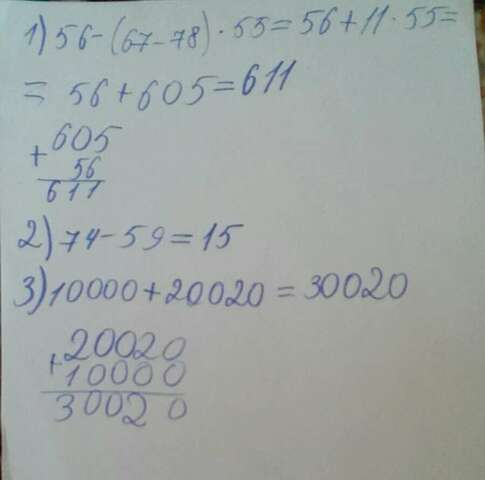 1) 56-(67-78)·55=56+11·55=
= 56+605=611
+ 605
56
611
2) 74-59=15
3) 10000+20020=30020
20020
+ 10000
30020